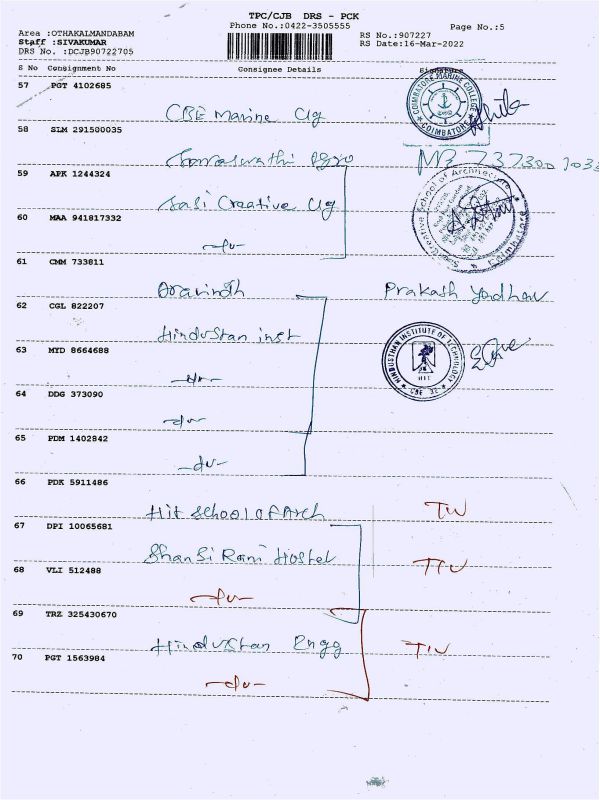 TPC/CJB DRS - PCK
Phone No.:0422-3505555
Page No.:5
Area :OTHAKALMANDABAM
Staff :SIVAKUMAR
DRS No. :DCJB90722705
RS No.:907227
RS Date:16-Mar-2022
S No Consignment No Consignee Details Signature
57 PGT 4102685
CBE Marine Clg
COIMBATORE MARINE COLLEGE
COIMBATORE
58 SLM 291500035
59 APK 1244324
Sasi Creative Clg
Creative School of Architecture
Coimbatore
60 MAA 941817332
-du-
61 CMM 733811
Aravindh Prakash
62 CGL 822207
Hindustan inst
HINDUSTHAN INSTITUTE OF TECHNOLOGY
HIT
CBE 32
63 MYD 8664688
-du-
64 DDG 373090
-du-
65 PDM 1402842
-du-
66 PDK 5911486
Hit school of Arch
67 DPI 10065681
Shansi Rani Hostel
68 VLI 512488
-du-
69 TRZ 325430670
Hindustan Engg
70 PGT 1563984
-du-